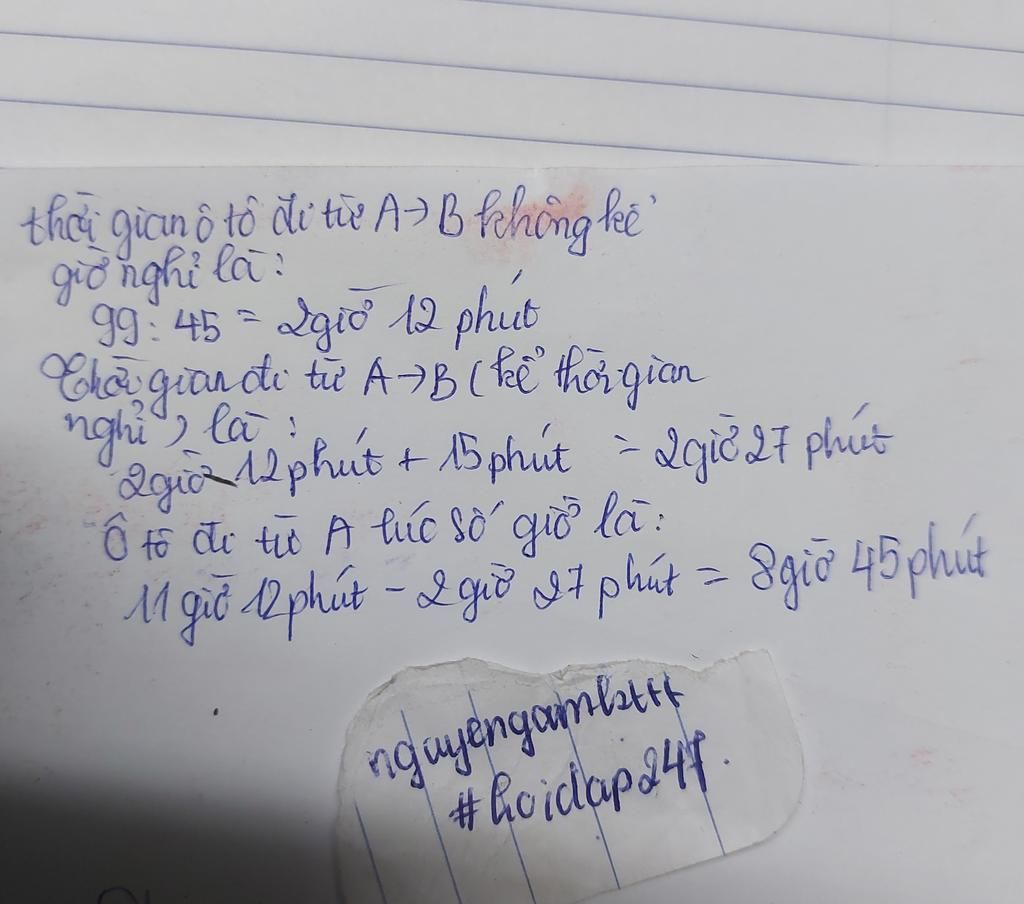 thời gian ô tô đi từ A→B không kể
giờ nghỉ là:
99: 45 = 2giờ 12 phút
Thời gian đi từ A→B (kể thời gian
nghỉ) là:
2giờ 12phút + 15phút = 2giờ 27 phút
Ô tô đi từ A lúc số giờ là:
11 giờ 12phút - 2giờ 27 phút = 8giờ 45phút
#hoidap247.